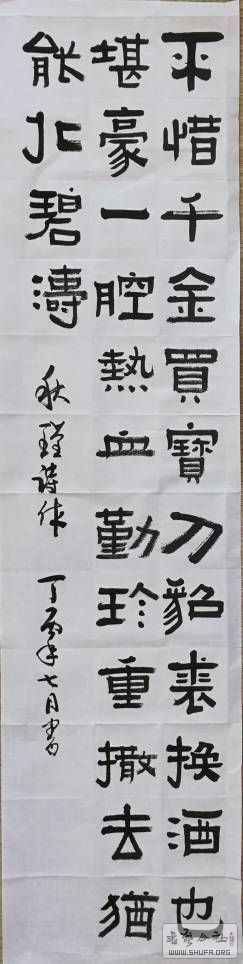 不惜千金買寶刀貂裘换酒也
堪豪一腔熱血勤珍重撒去猶
能化碧濤
秋瑾詩作 丁酉年七月書
WWW.SHUFA.ORG